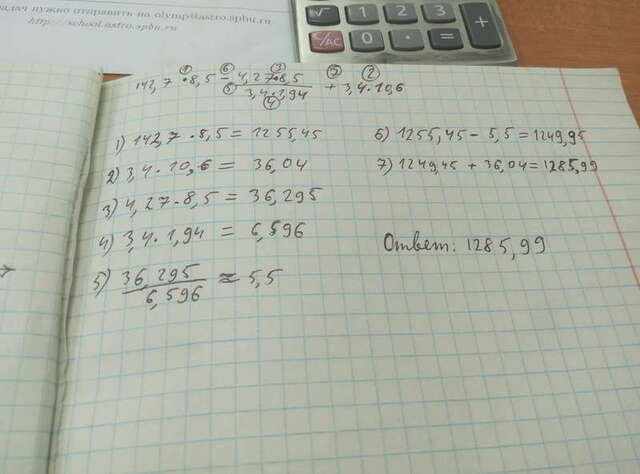 адач нужно отправить на olymp@astro.spbu.ru
http://school.astro.spbu.ru
√ 1 2 3 +
C/AC 0 . =
① ⑥ ③ ⑦ ②
142,7 · 8,5 − 4,27·8,5 / 3,4·1,94 + 3,4·10,6
⑤ ④
1) 142,7 · 8,5 = 1255,45
2) 3,4 · 10,6 = 36,04
3) 4,27 · 8,5 = 36,295
4) 3,4 · 1,94 = 6,596
5) 36,295 / 6,596 ≈ 5,5
6) 1255,45 − 5,5 = 1249,95
7) 1249,45 + 36,04 = 1285,99
Ответ: 1285,99